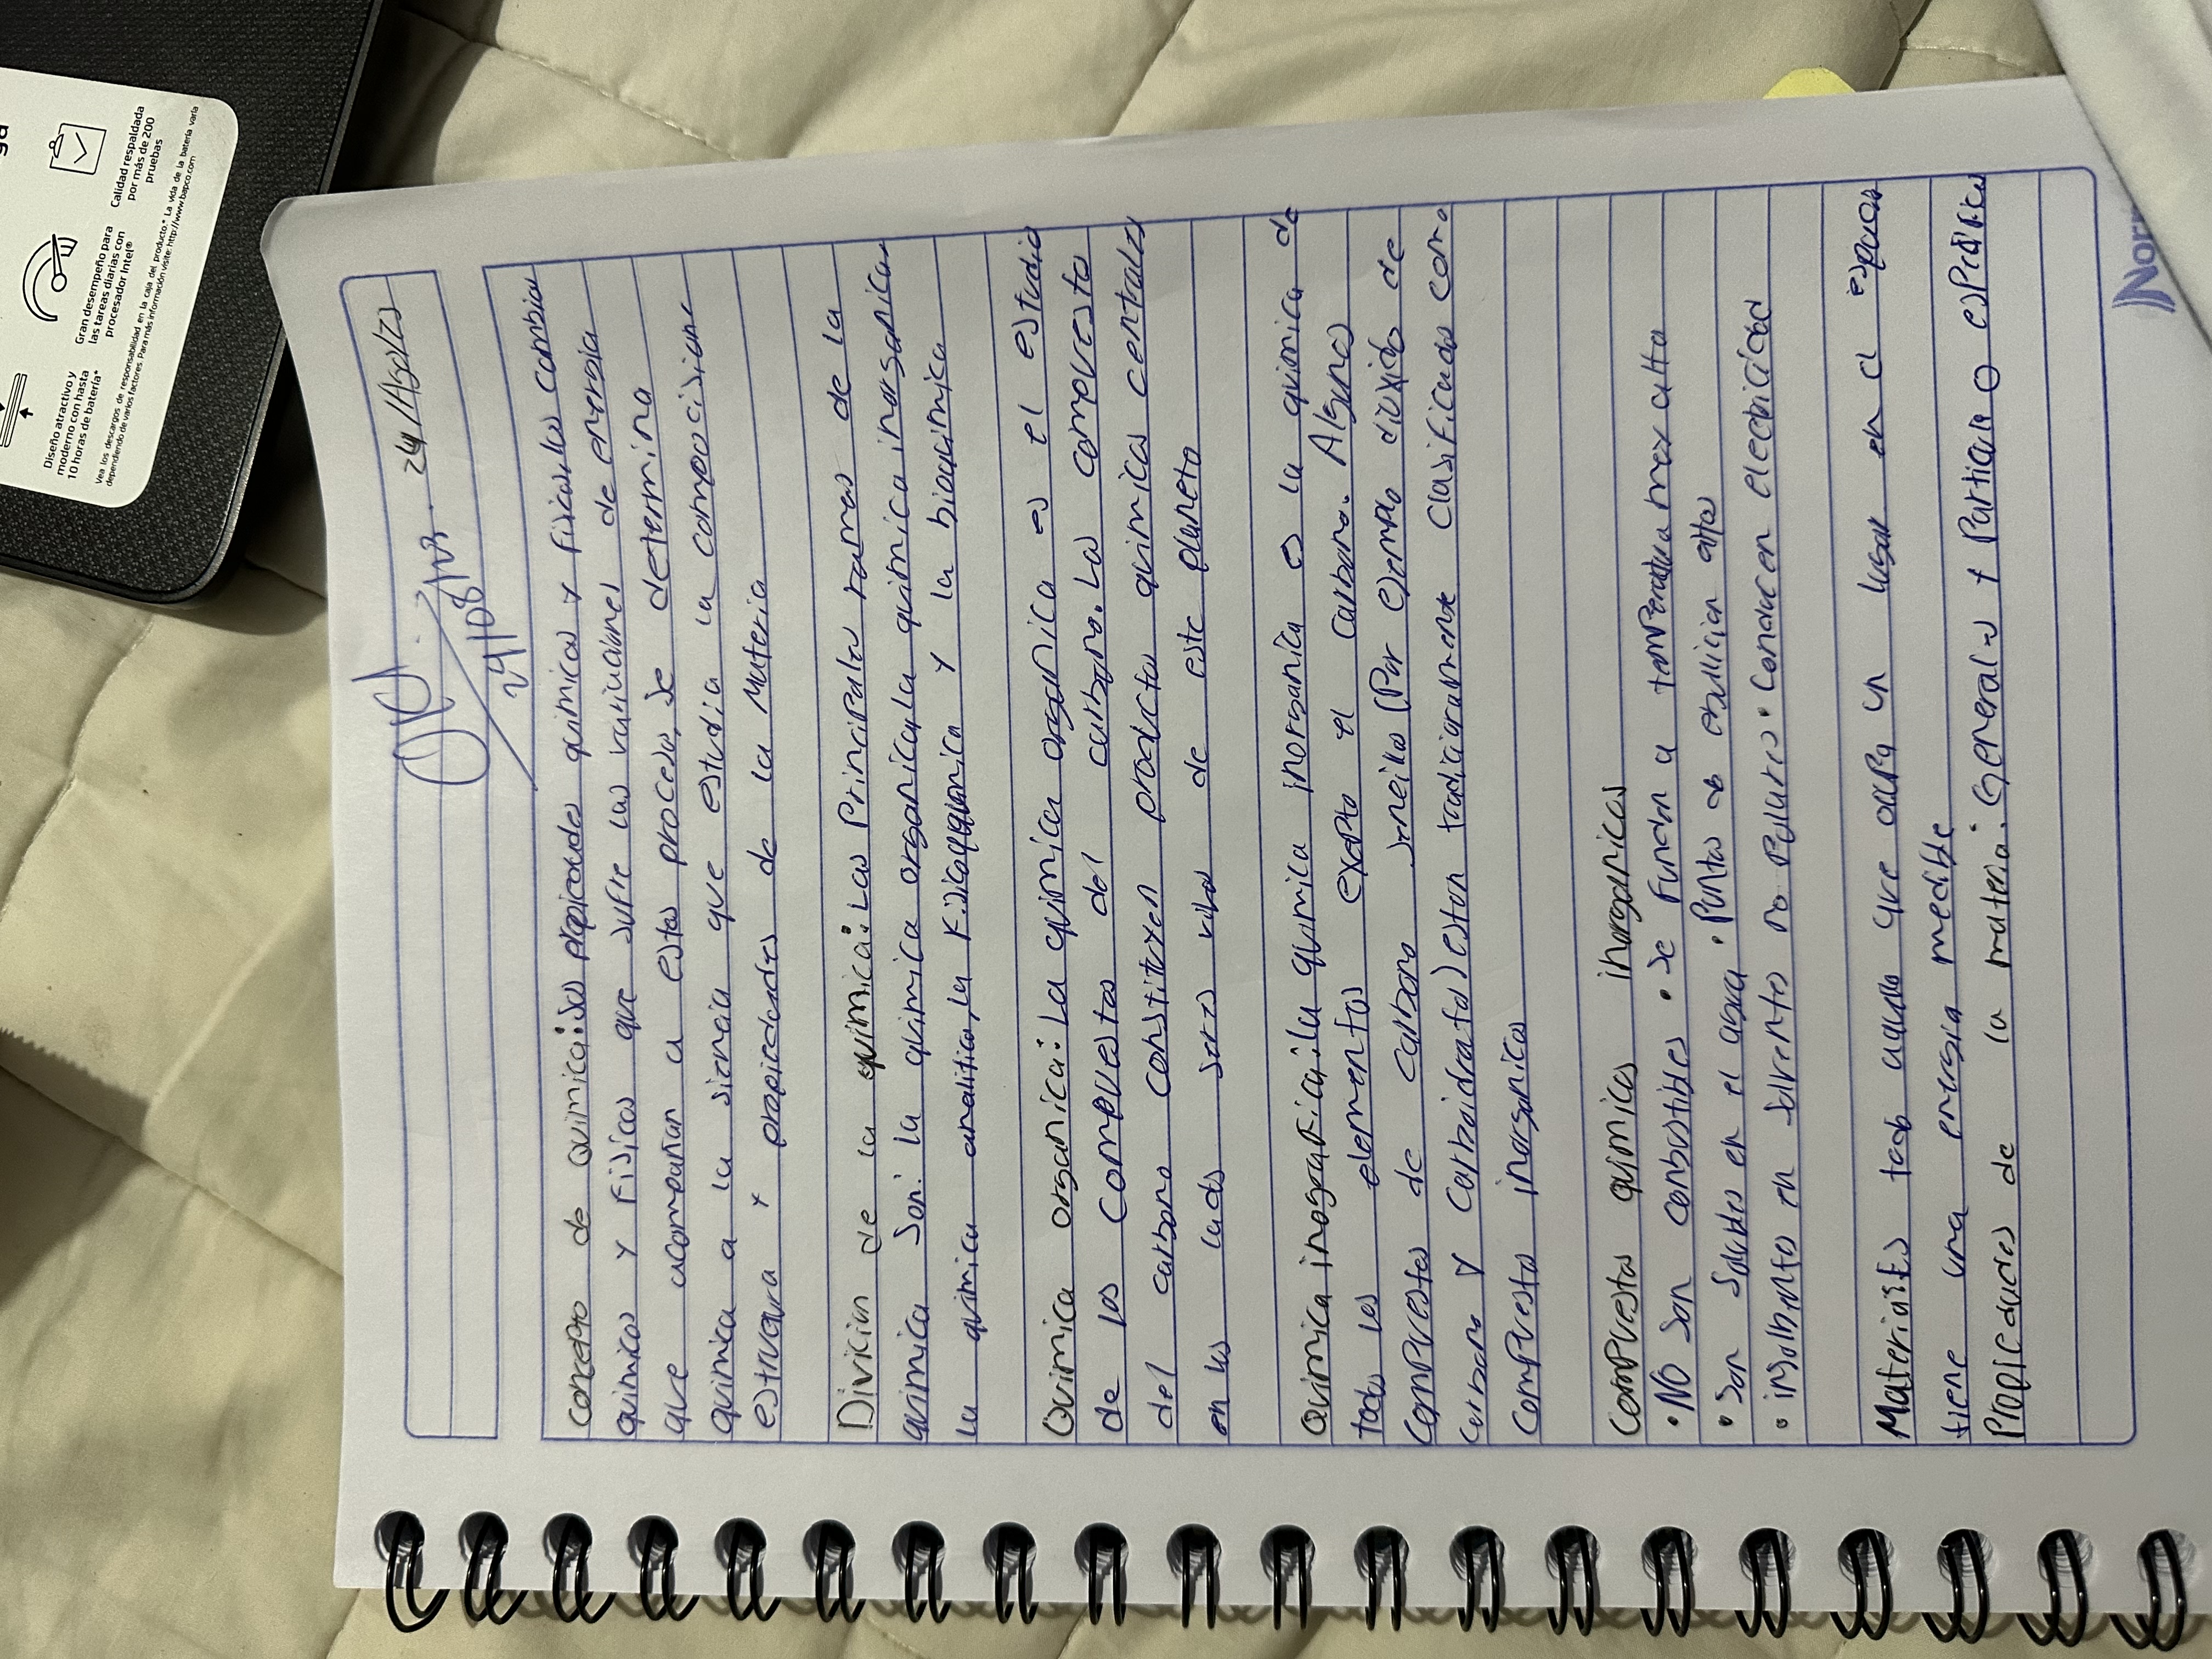 Diseño atractivo y
moderno con hasta
10 horas de batería*
Gran desempeño para
las tareas diarias con
procesador Intel®
Calidad respaldada
por más de 200
pruebas
Vea los descargos de responsabilidad en la caja del producto.* La vida de la batería varía
dependiendo de varios factores. Para más información visite: http://www.bapco.com
24/Ago/23
24/08/23
concepto de quimica: Sus propiedades quimicas y fisicas los cambios
quimicos y fisicos que sufre las variaciones de energia
que acompañan a estos procesos, se determina
quimica a la siencia que estudia la composicion
estructura y propiedades de la Materia
Divicion de la quimica: Las Principales ramas de la
quimica Son: la quimica organica, la quimica inorganica
la quimica analitica, la Fisicoquimica y la bioquimica
Quimica organica: La quimica organica es el estudio
de los compuestos del carbono. Los compuesto
del carbono constituyen productos quimicos centrales
en los seres vivos de este planeta
Quimica la quimica inorganica es la quimica de
todos los elementos exepto el carbono. Algunos
compuestos de carbono (Por ejemplo dioxido de
carbono y estan clasificados como
compuesto inorganico
Compuestos quimicos inorganicos
• NO son combustibles • Se Funden a temperatura mex alta
• Son Solubles en el agua • Puntos de ebullicion altos
• en Solventes no Polares • Conducen electricidad
Materiales todo aquello que ocupa un lugar en el espacio
tiene una energia medible
Propiedades de la materia: Generales y
Norma